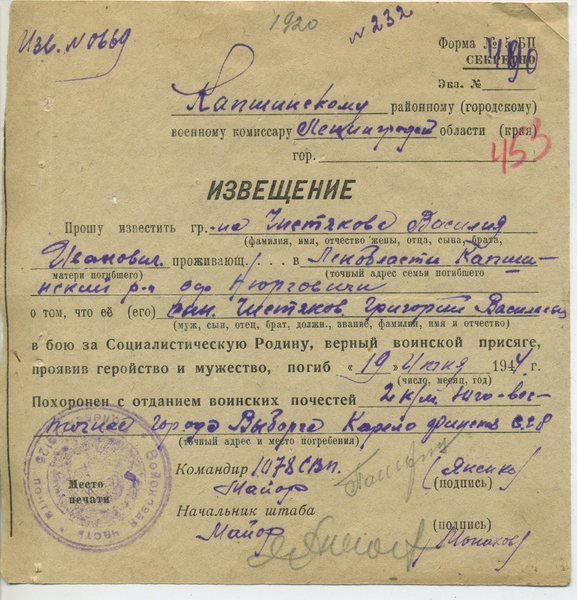 1920
N 232
Изв. N 0669
Форма № 5/БП
СЕКРЕТНО
490
Экз. №
Капшинскому районному (городскому)
военному комиссару Ленинградск области (края)
453
гор.
ИЗВЕЩЕНИЕ
Прошу известить гр.-на Чистякова Василия
(фамилия, имя, отчество жены, отца, сына, брата,
Иванович. проживающ. . . . в Ленобласти Капши-
матери погибшего) (точный адрес семьи погибшего)
нский р-н с/с Нюрговичи
о том, что её (его) сын. Чистяков Григорий Васильевич
(муж, сын, отец, брат, должн., звание, фамилия, имя и отчество)
в бою за Социалистическую Родину, верный воинской присяге,
проявив геройство и мужество, погиб «19» июня 1944 г.
(число, месяц, год)
Похоронен с отданием воинских почестей 2 км. Юго-вос-
точнее города Выборга Карело финской ССР
(точный адрес и место погребения)
Командир 1078 СВп. (Яненко)
Майор (подпись)
Место
печати
Начальник штаба
(подпись)
Майор (Монахов)